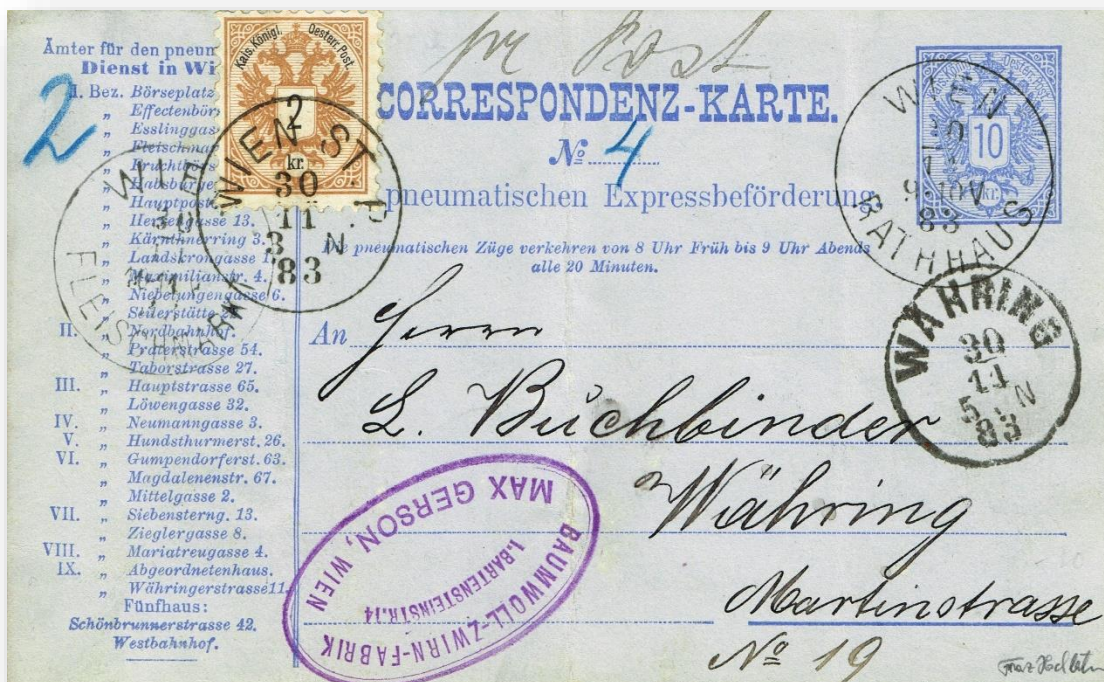 Ämter für den pneum
Dienst in Wi
2
I. Bez. Börseplatz
„ Effectenbör
„ Esslinggas
„ Fleischmar
„ Fruchtbörs
„ Habsburge
„ Hauptpost
„ Herrengasse 13.
„ Kärnthnerring 3.
„ Landskrongasse 1.
„ Maximilianstr. 4.
„ Niebelungengasse 6.
„ Seilerstätte 22
II. „ Nordbahnhof.
„ Praterstrasse 54.
„ Taborstrasse 27.
III. „ Hauptstrasse 65.
„ Löwengasse 32.
IV. „ Neumanngasse 3.
V. „ Hundsthurmerst. 26.
VI. „ Gumpendorferst. 63.
„ Magdalenenstr. 67.
„ Mittelgasse 2.
VII. „ Siebensterng. 13.
„ Zieglergasse 8.
VIII. „ Mariatreugasse 4.
IX. „ Abgeordnetenhaus.
„ Währingerstrasse 11
Fünfhaus:
Schönbrunnerstrasse 42.
Westbahnhof.
Kais. Königl. Oesterr. Post.
2
kr.
WIEN ST
30
11
3 N
83
WIEN
30
FLEISCHMARKT
pr Post
CORRESPONDENZ-KARTE.
No 4
pneumatischen Expressbeförderung
Die pneumatischen Züge verkehren von 8 Uhr Früh bis 9 Uhr Abends
alle 20 Minuten.
10
kr.
WIEN
9-10V
83
RATHHAUS
WÄHRING
30
11
5 N
83
An Herrn
L. Buchbinder
Währing
Martinstrasse
No 19
BAUMWOLL-ZWIRN-FABRIK
I. BARTENSTEINSTR. 14
MAX GERSON, WIEN